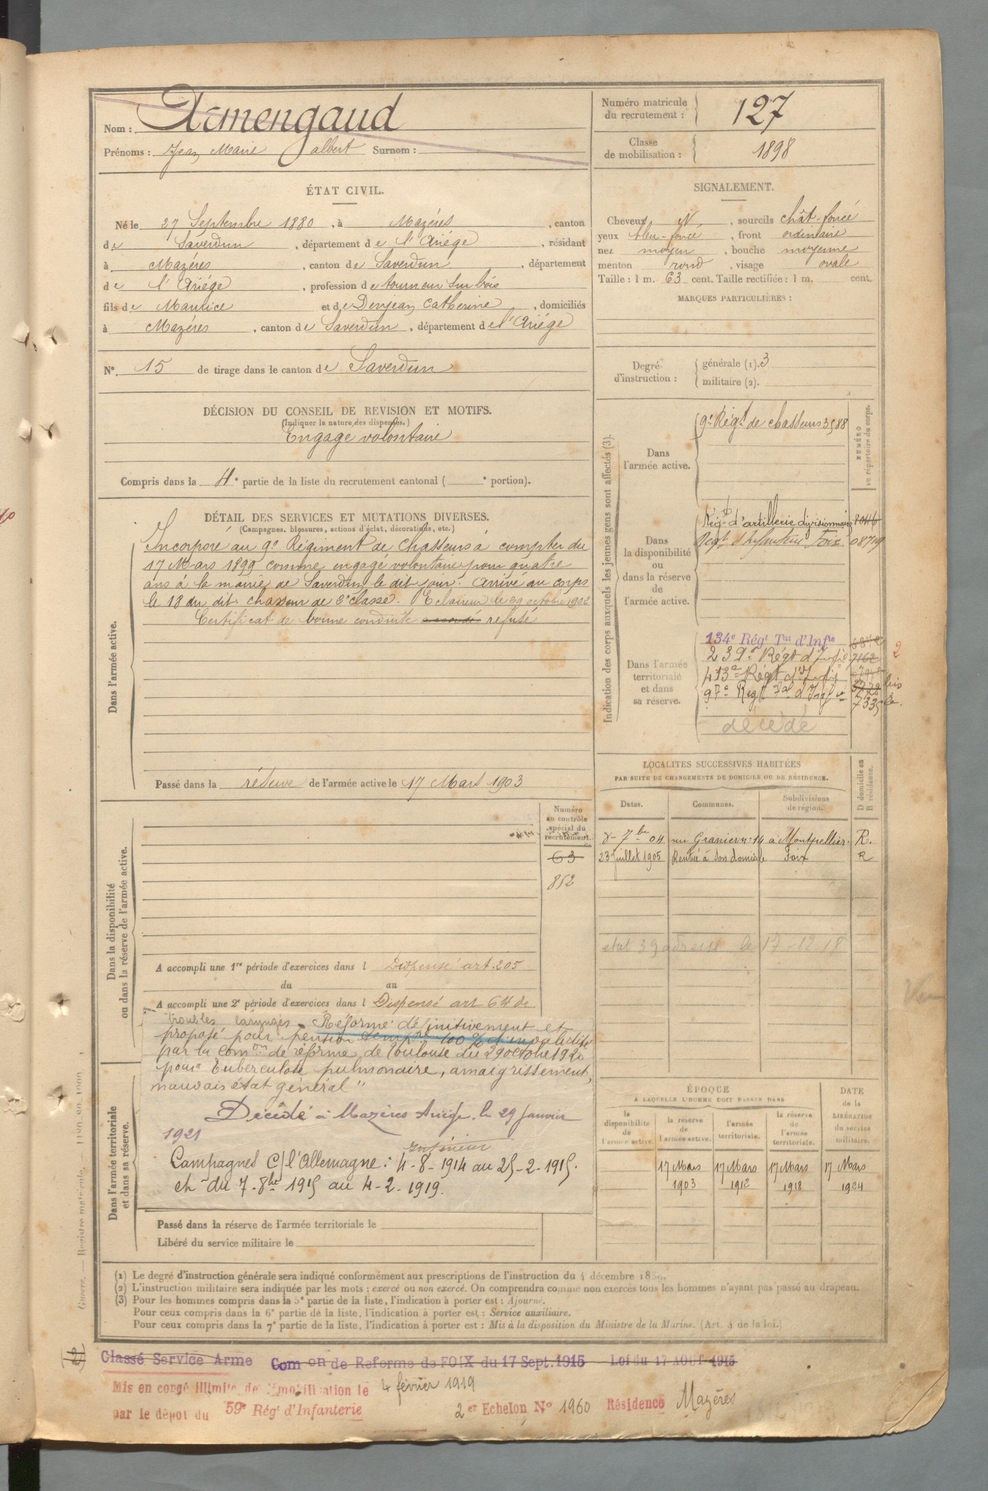 Nom : Armengaud
Prénoms : Jean Marie Albert Surnom :
Numéro matricule du recrutement : 127
Classe de mobilisation : 1898
ÉTAT CIVIL.
Né le 27 Septembre 1880, à Mazères, canton
de Saverdun, département de l'Ariège, résidant
à Mazères, canton de Saverdun, département
de l'Ariège, profession de tourneur sur bois
fils de Maurice et de Derjean Catherine, domiciliés
à Mazères, canton de Saverdun, département de l'Ariège
N° 15 de tirage dans le canton de Saverdun
SIGNALEMENT.
Cheveux N, sourcils chât-foncé
yeux bleu-foncé, front ordinaire
nez moyen, bouche moyenne
menton rond, visage ovale
Taille : 1 m. 63 cent. Taille rectifiée : 1 m. cent.
MARQUES PARTICULIÈRES :
Degré d'instruction : générale (1). 3
militaire (2).
DÉCISION DU CONSEIL DE REVISION ET MOTIFS.
(Indiquer la nature des dispenses.)
Engagé volontaire
Compris dans la 4e partie de la liste du recrutement cantonal ( e portion).
DÉTAIL DES SERVICES ET MUTATIONS DIVERSES.
(Campagnes, blessures, actions d'éclat, décorations, etc.)
Dans l'armée active.
Incorporé au 9e Régiment de Chasseurs à compter du
17 Mars 1899 comme engagé volontaire pour quatre
ans à la mairie de Saverdun le dit jour. Arrivé au corps
le 18 du dit chasseur de 2e classe. Eclaireur le 29 octobre 1902
Certificat de bonne conduite accordé refusé
Passé dans la réserve de l'armée active le 17 Mars 1903
Indication des corps auxquels les jeunes gens sont affectés (3).
NUMÉRO au répertoire du corps.
Dans l'armée active.
9e Régt de chasseurs 3588
Dans la disponibilité ou dans la réserve de l'armée active.
Régt d'artillerie divisionnaire
Régt d'infanterie Foix
Dans l'armée territoriale et dans sa réserve.
134e Régt Tal d'Infie
239e Régt d'Infie
413e Régt d'Infie
97e Régt d'Infie
décédé
LOCALITÉS SUCCESSIVES HABITÉES
PAR SUITE DE CHANGEMENTS DE DOMICILE OU DE RÉSIDENCE.
Dates. Communes. Subdivisions de région. D domicile et R résidence.
7bre 04 rue Granier n° 14 à Montpellier. R.
23 Juillet 1905 Rentré à son domicile Foix R
Dans la disponibilité ou dans la réserve de l'armée active.
Numéro au contrôle spécial du recrutement.
63
852
A accompli une 1re période d'exercices dans l Dispensé art. 205
du au
A accompli une 2e période d'exercices dans l Dispensé art 64 de
troubles laryngés - Réformé définitivement et
proposé pour pension temp. 100 % d'invalidité
par la Comon de réforme de Toulouse du 29 octobre 1920
pour tuberculose pulmonaire, amaigrissement,
mauvais état général "
Décédé à Mazères Ariège le 29 Janvier
1921
Intérieur
Campagnes C/ l'Allemagne : 4-8-1914 au 25-2-1915.
et du 7-8bre 1915 au 4-2-1919.
Dans l'armée territoriale et dans sa réserve.
Passé dans la réserve de l'armée territoriale le
Libéré du service militaire le
ÉPOQUE
À LAQUELLE L'HOMME DOIT PASSER DANS
DATE de la LIBÉRATION du service militaire.
la disponibilité de l'armée active. la réserve de l'armée active. l'armée territoriale. la réserve de l'armée territoriale.
17 Mars 1903 17 Mars 1912 17 Mars 1918 17 Mars 1924
(1) Le degré d'instruction générale sera indiqué conformément aux prescriptions de l'instruction du 4 décembre 1889.
(2) L'instruction militaire sera indiquée par les mots : exercé ou non exercé. On comprendra comme non exercés tous les hommes n'ayant pas passé au drapeau.
(3) Pour les hommes compris dans la 5e partie de la liste, l'indication à porter est : Ajourné.
Pour ceux compris dans la 6e partie de la liste, l'indication à porter est : Service auxiliaire.
Pour ceux compris dans la 7e partie de la liste, l'indication à porter est : Mis à la disposition du Ministre de la Marine. (Art. 4 de la loi.)
Classé Service Armé Com on de Reforme de FOIX du 17 Sept. 1915 Loi du 17 AOUT 1915
Mis en congé illimité de démobilisation le 4 février 1919
par le dépôt du 59e Régt d'Infanterie
2er Echelon N° 1960 Résidence Mazères